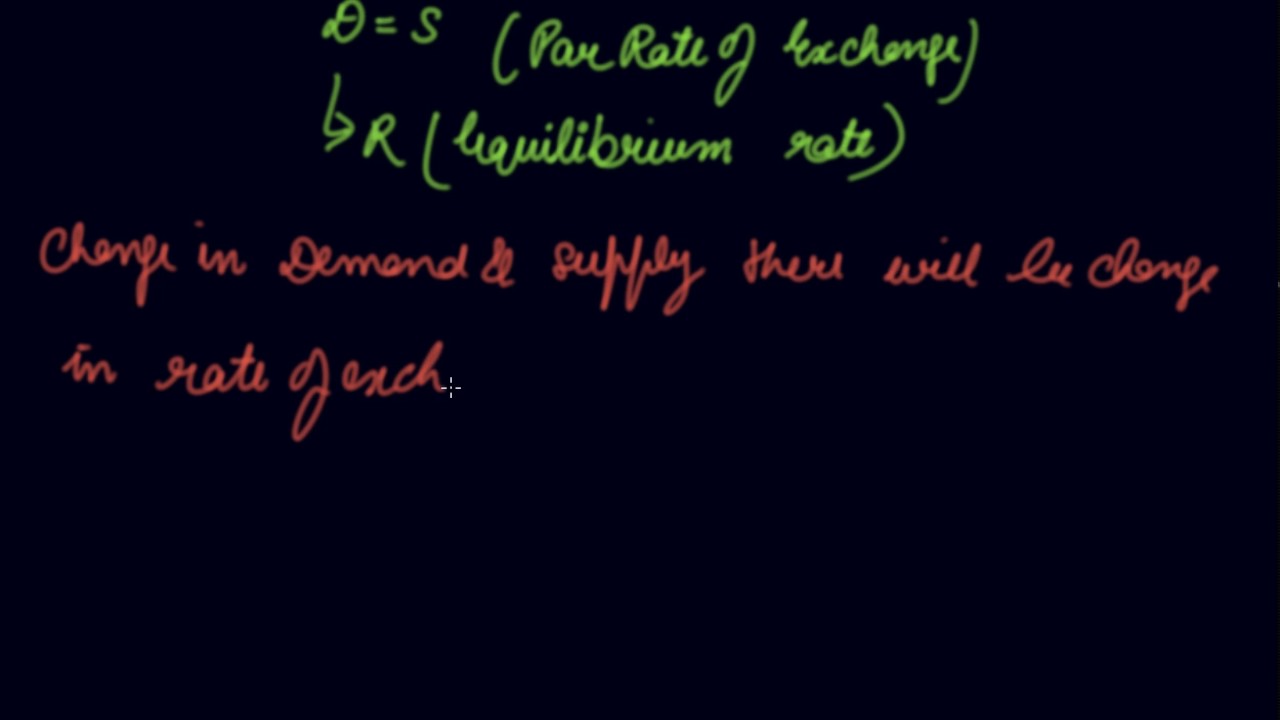 D = S (Par Rate of Exchange)
↳ R (Equilibrium rate)
Change in Demand & Supply there will be change
in rate of exch